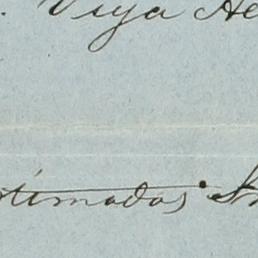 . Viya He
stimados S